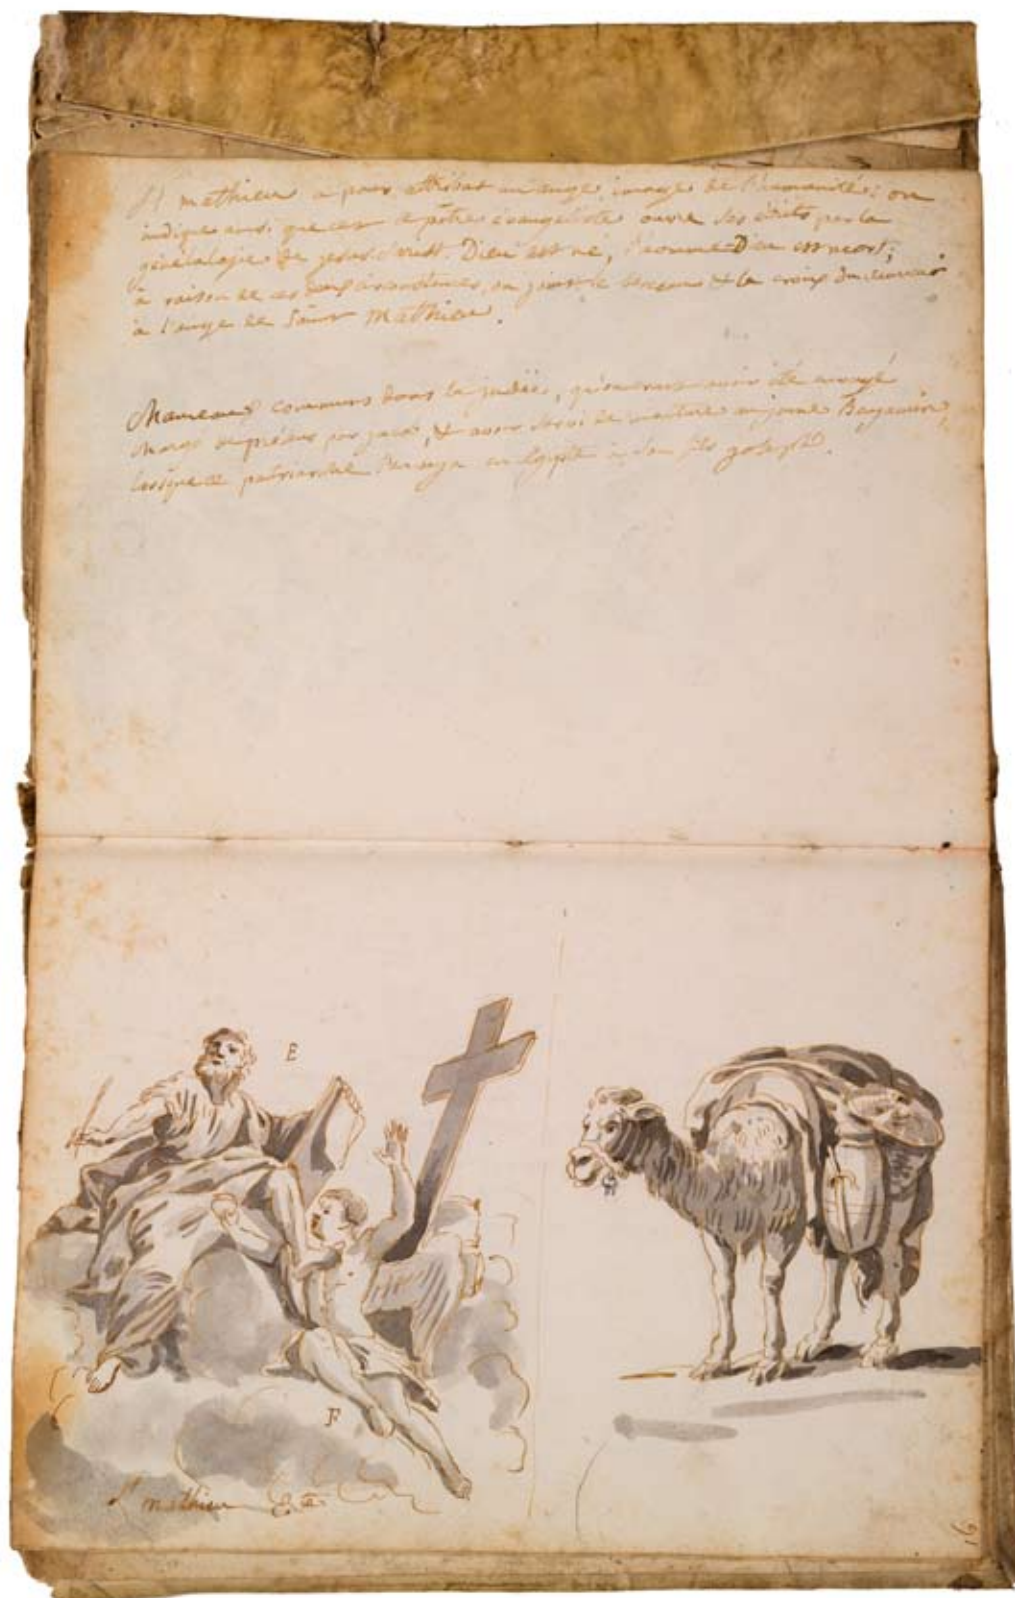 St mathieu a pour attribut un ange, image de l'humanité: on
indique ainsi que cet apôtre évangeliste ouvre ses écrits par la
généalogie de jesus christ. Dieu est né, l'homme-Dieu est mort;
à raison de ces deux circonstances, on joint le berceau & la croix du
à l'ange de saint Mathieu.
Chameaux communs dans la judée, qu'on
chargé de présens par jacob, & avoir servi de monture au jeune Benjamin,
lorsque ce patriarche l'envoya en Egypte à son fils joseph.
E
F
St mathieu
16